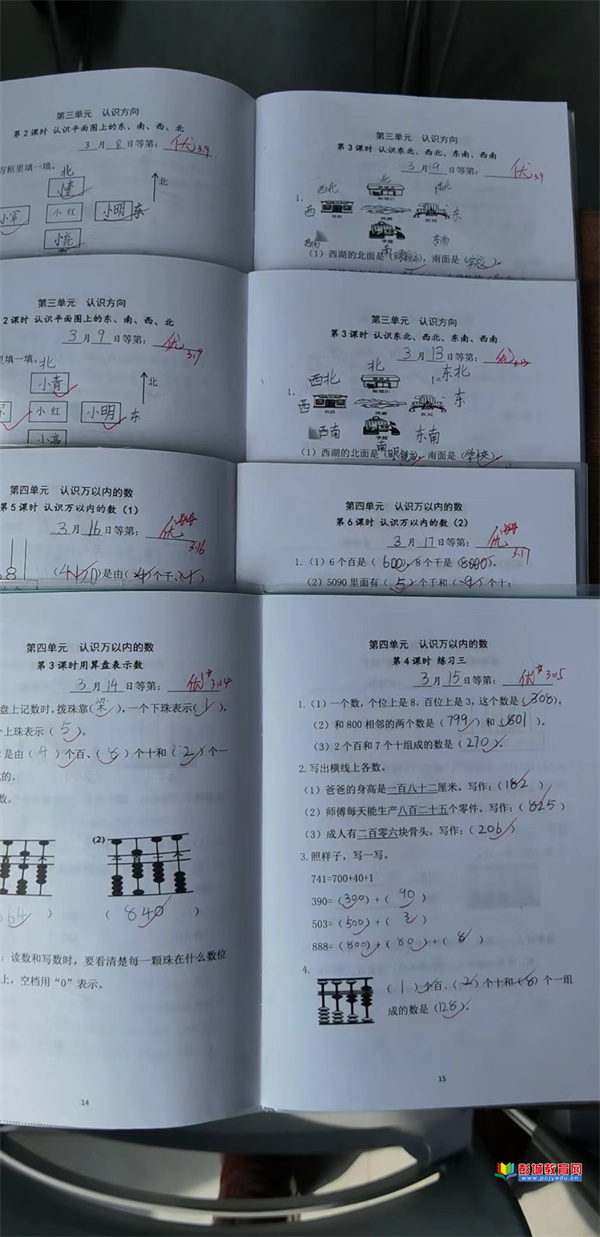 第三单元 认识方向
第2课时 认识平面图上的东、南、西、北
3月8日等第： 优 3.9
方框里填一填。
北
小李 北
小军 小红 小明 东
小亮
第三单元 认识方向
第3课时 认识东北、西北、东南、西南
3月9日等第： 优 3.9
西北 北
1.
西 东
西南 南 东南
（1）西湖的北面是（ ），南面是（学校）。
第三单元 认识方向
2课时 认识平面图上的东、南、西、北
3月9日等第： 优 3.9
里填一填。 北
小青 北
小红 小明 东
小亮
第三单元 认识方向
第3课时 认识东北、西北、东南、西南
3月13日等第： 优 3.13
1.
西北 北 东北
东
西南 南 东南
（1）西湖的北面是（ ），南面是（学校）。
第四单元 认识万以内的数
第5课时 认识万以内的数（1）
3月16日等第： 优 3.16
是由（4）个千、
第四单元 认识万以内的数
第6课时 认识万以内的数（2）
3月17日等第： 优 3.17
1.（1）6个百是（600），8个千是（8000）。
（2）5090里面有（5）个千和（9）个十；
第四单元 认识万以内的数
第3课时用算盘表示数
3月14日等第： 优
盘上记数时，拨珠靠（梁），一个下珠表示（1），
个上珠表示（5）。
是由（4）个百、（8）个十和（2）个一
成的。
数。
（2）
664） （840）
：读数和写数时，要看清楚每一颗珠在什么数位
上，空档用“0”表示。
14
第四单元 认识万以内的数
第4课时 练习三
3月15日等第： 优 3.15
1.（1）一个数，个位上是8，百位上是3，这个数是（308）。
（2）和800相邻的两个数是（799）和（801）。
（3）2个百和7个十组成的数是（270）。
2.写出横线上各数。
（1）爸爸的身高是一百八十二厘米。写作：（182）
（2）师傅每天能生产八百二十五个零件。写作：（825）
（3）成人有二百零六块骨头。写作：（206）
3.照样子，写一写。
741=700+40+1
390=（300）+（90）
503=（500）+（3）
888=（800）+（80）+（8）
4.
（1）个百、（2）个十和（8）个一组
成的数是（128）。
15
彭城教育网
www.pcjyedu.cn